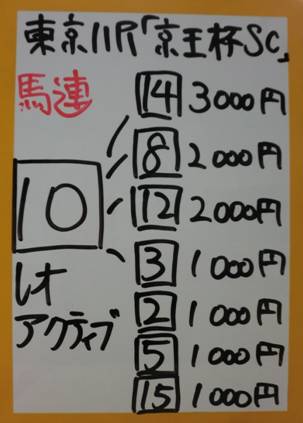 東京11R「京王杯SC」
馬連
14 3000円
8 2000円
12 2000円
10
3 1000円
レオ
アクティブ
2 1000円
5 1000円
15 1000円